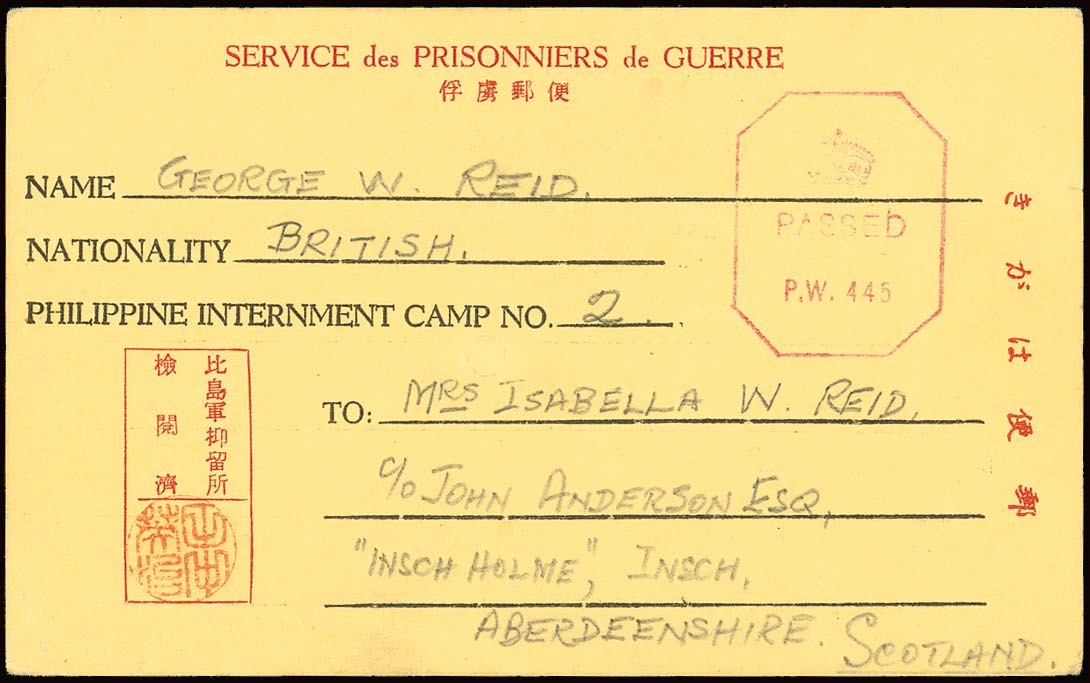 SERVICE des PRISONNIERS de GUERRE
俘虜郵便
NAME GEORGE W. REID.
NATIONALITY BRITISH.
PHILIPPINE INTERNMENT CAMP NO. 2.
PASSED
P.W. 445
きがは便郵
比島軍抑留所
檢閱濟
TO: MRS ISABELLA W. REID.
c/o JOHN ANDERSON ESQ,
"INSCH HOLME", INSCH,
ABERDEENSHIRE. SCOTLAND.